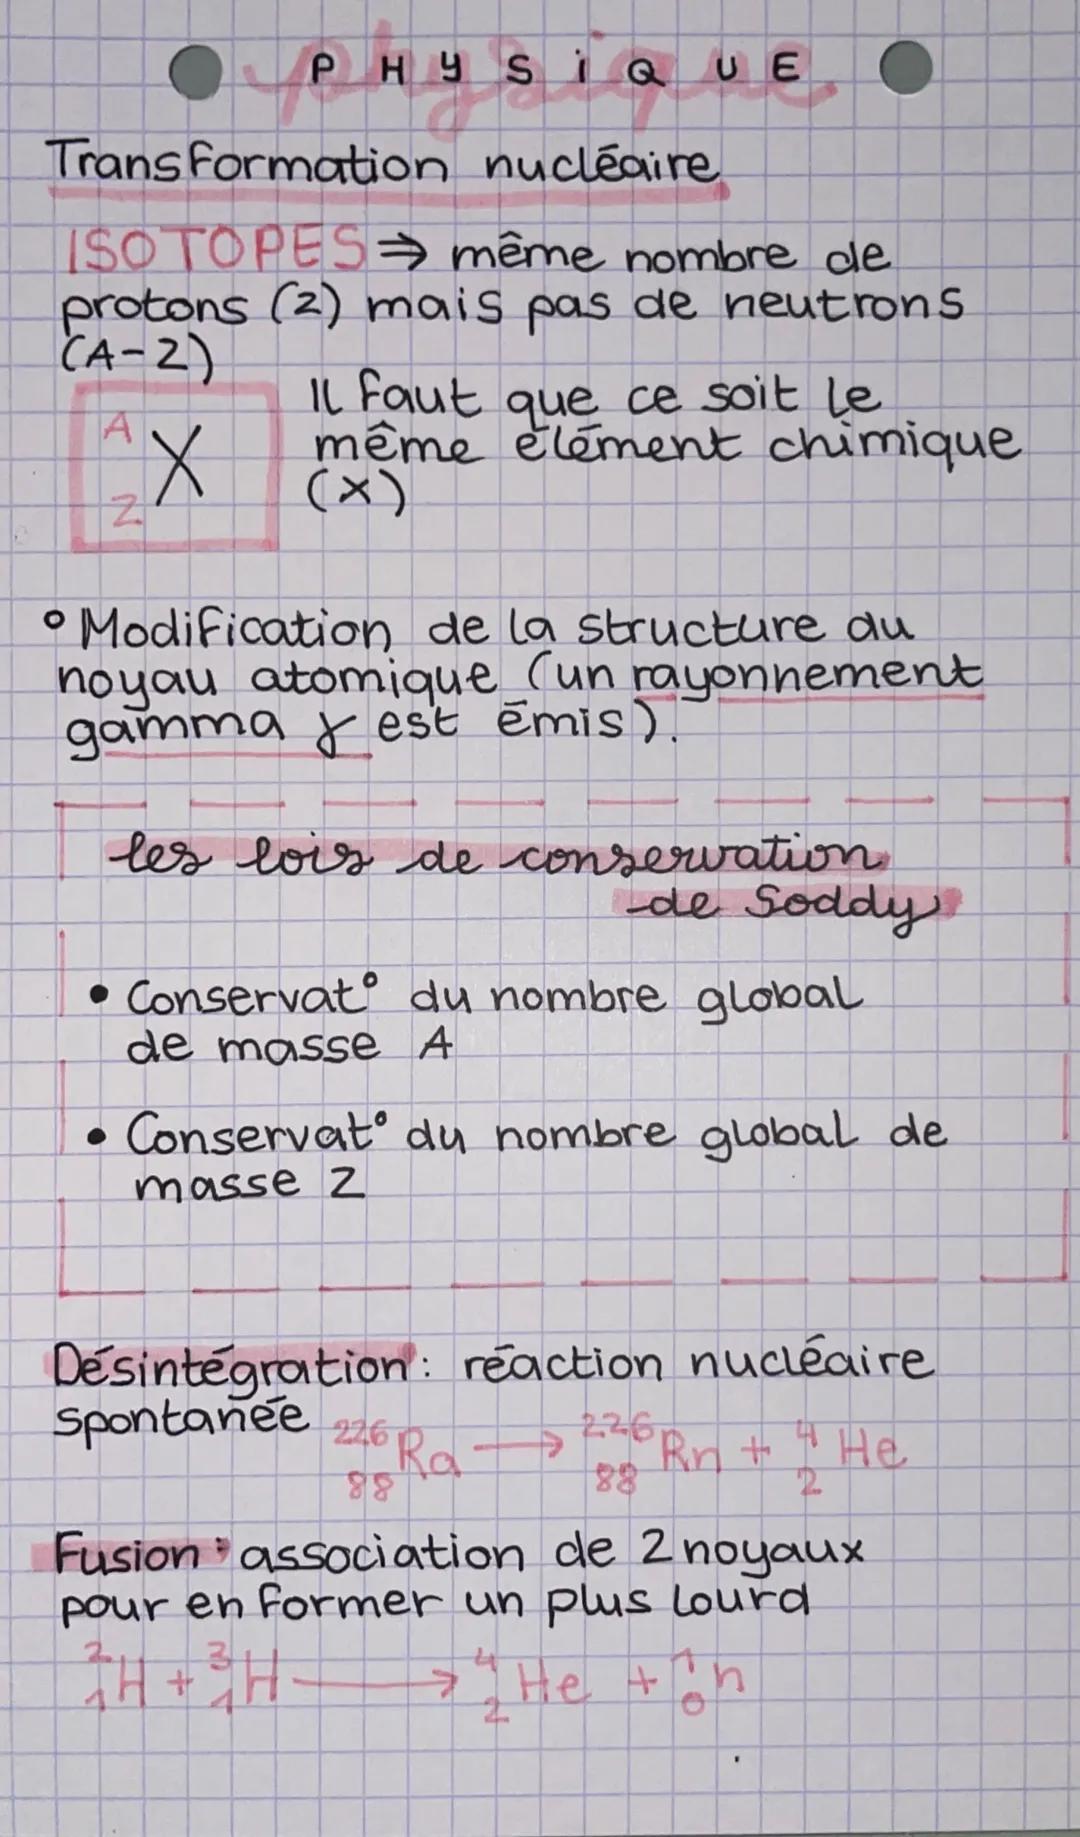 physique
PHYSiQUE
Transformation nucléaire
ISOTOPES ⇒ même nombre de
protons (Z) mais pas de neutrons
(A-Z)
A
Z
X
Il faut que ce soit le
même élément chimique
(X)
° Modification de la structure du
noyau atomique (un rayonnement
gamma γ est émis).
les lois de conservation
de Soddy
• Conservat° du nombre global
de masse A
• Conservat° du nombre global de
masse Z
Désintégration : réaction nucléaire
spontanée
²²⁶₈₈Ra → ²²⁶₈₈Rn + ⁴₂He
Fusion : association de 2 noyaux
pour en former un plus lourd
²₁H + ³₁H → ⁴₂He + ¹₀n